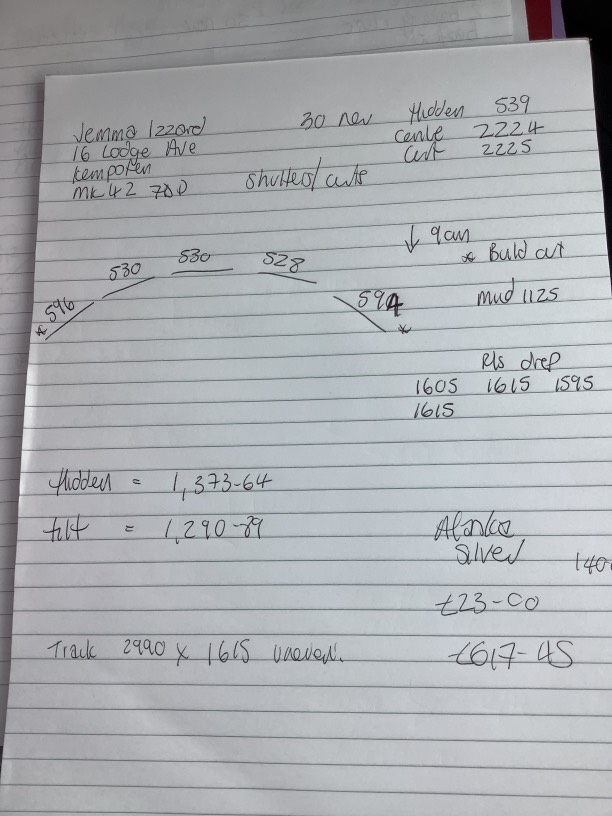 Jemma Izzard
16 Lodge Ave
Kempston
MK42 7
30 Nov
Hidden 539
Centre 2224
2225
Shutters/
596
530
530
528
594
↓ 9cm
* cut
mud 1125
Rls drop
1605 1615 1595
1615
Hidden = 1,373-64
tilt = 1,290-89
Silver
140
£23-00
Track 2990 x 1615 uneven.
£617-45